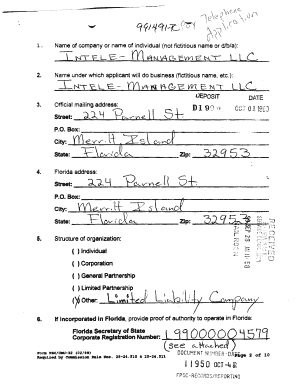 991491-TC
Pay Telephone
Application
1. Name of company or name of individual (not fictitious name or d/b/a):
INTELE-MANAGEMENT LLC
2. Name under which applicant will do business (fictitious name, etc.):
INTELE-MANAGEMENT LLC
DEPOSIT DATE
3. Official mailing address: D199 OCT 01 1999
Street: 224 Parnell St
P.O. Box:
City: Merritt Island
State: Florida Zip: 32953
4. Florida address:
Street: 224 Parnell St.
P.O. Box:
City: Merritt Island
State: Florida Zip: 32953
RECEIVED
5. Structure of organization:
( ) Individual
( ) Corporation
( ) General Partnership
( ) Limited Partnership
( ) Other: Limited Liability Company
6. If incorporated in Florida, provide proof of authority to operate in Florida:
Florida Secretary of State
Corporate Registration Number: L99000004579
(see attached)
DOCUMENT NUMBER-DATE
Page 2 of 10
11950 OCT-4
FPSC-RECORDS/REPORTING